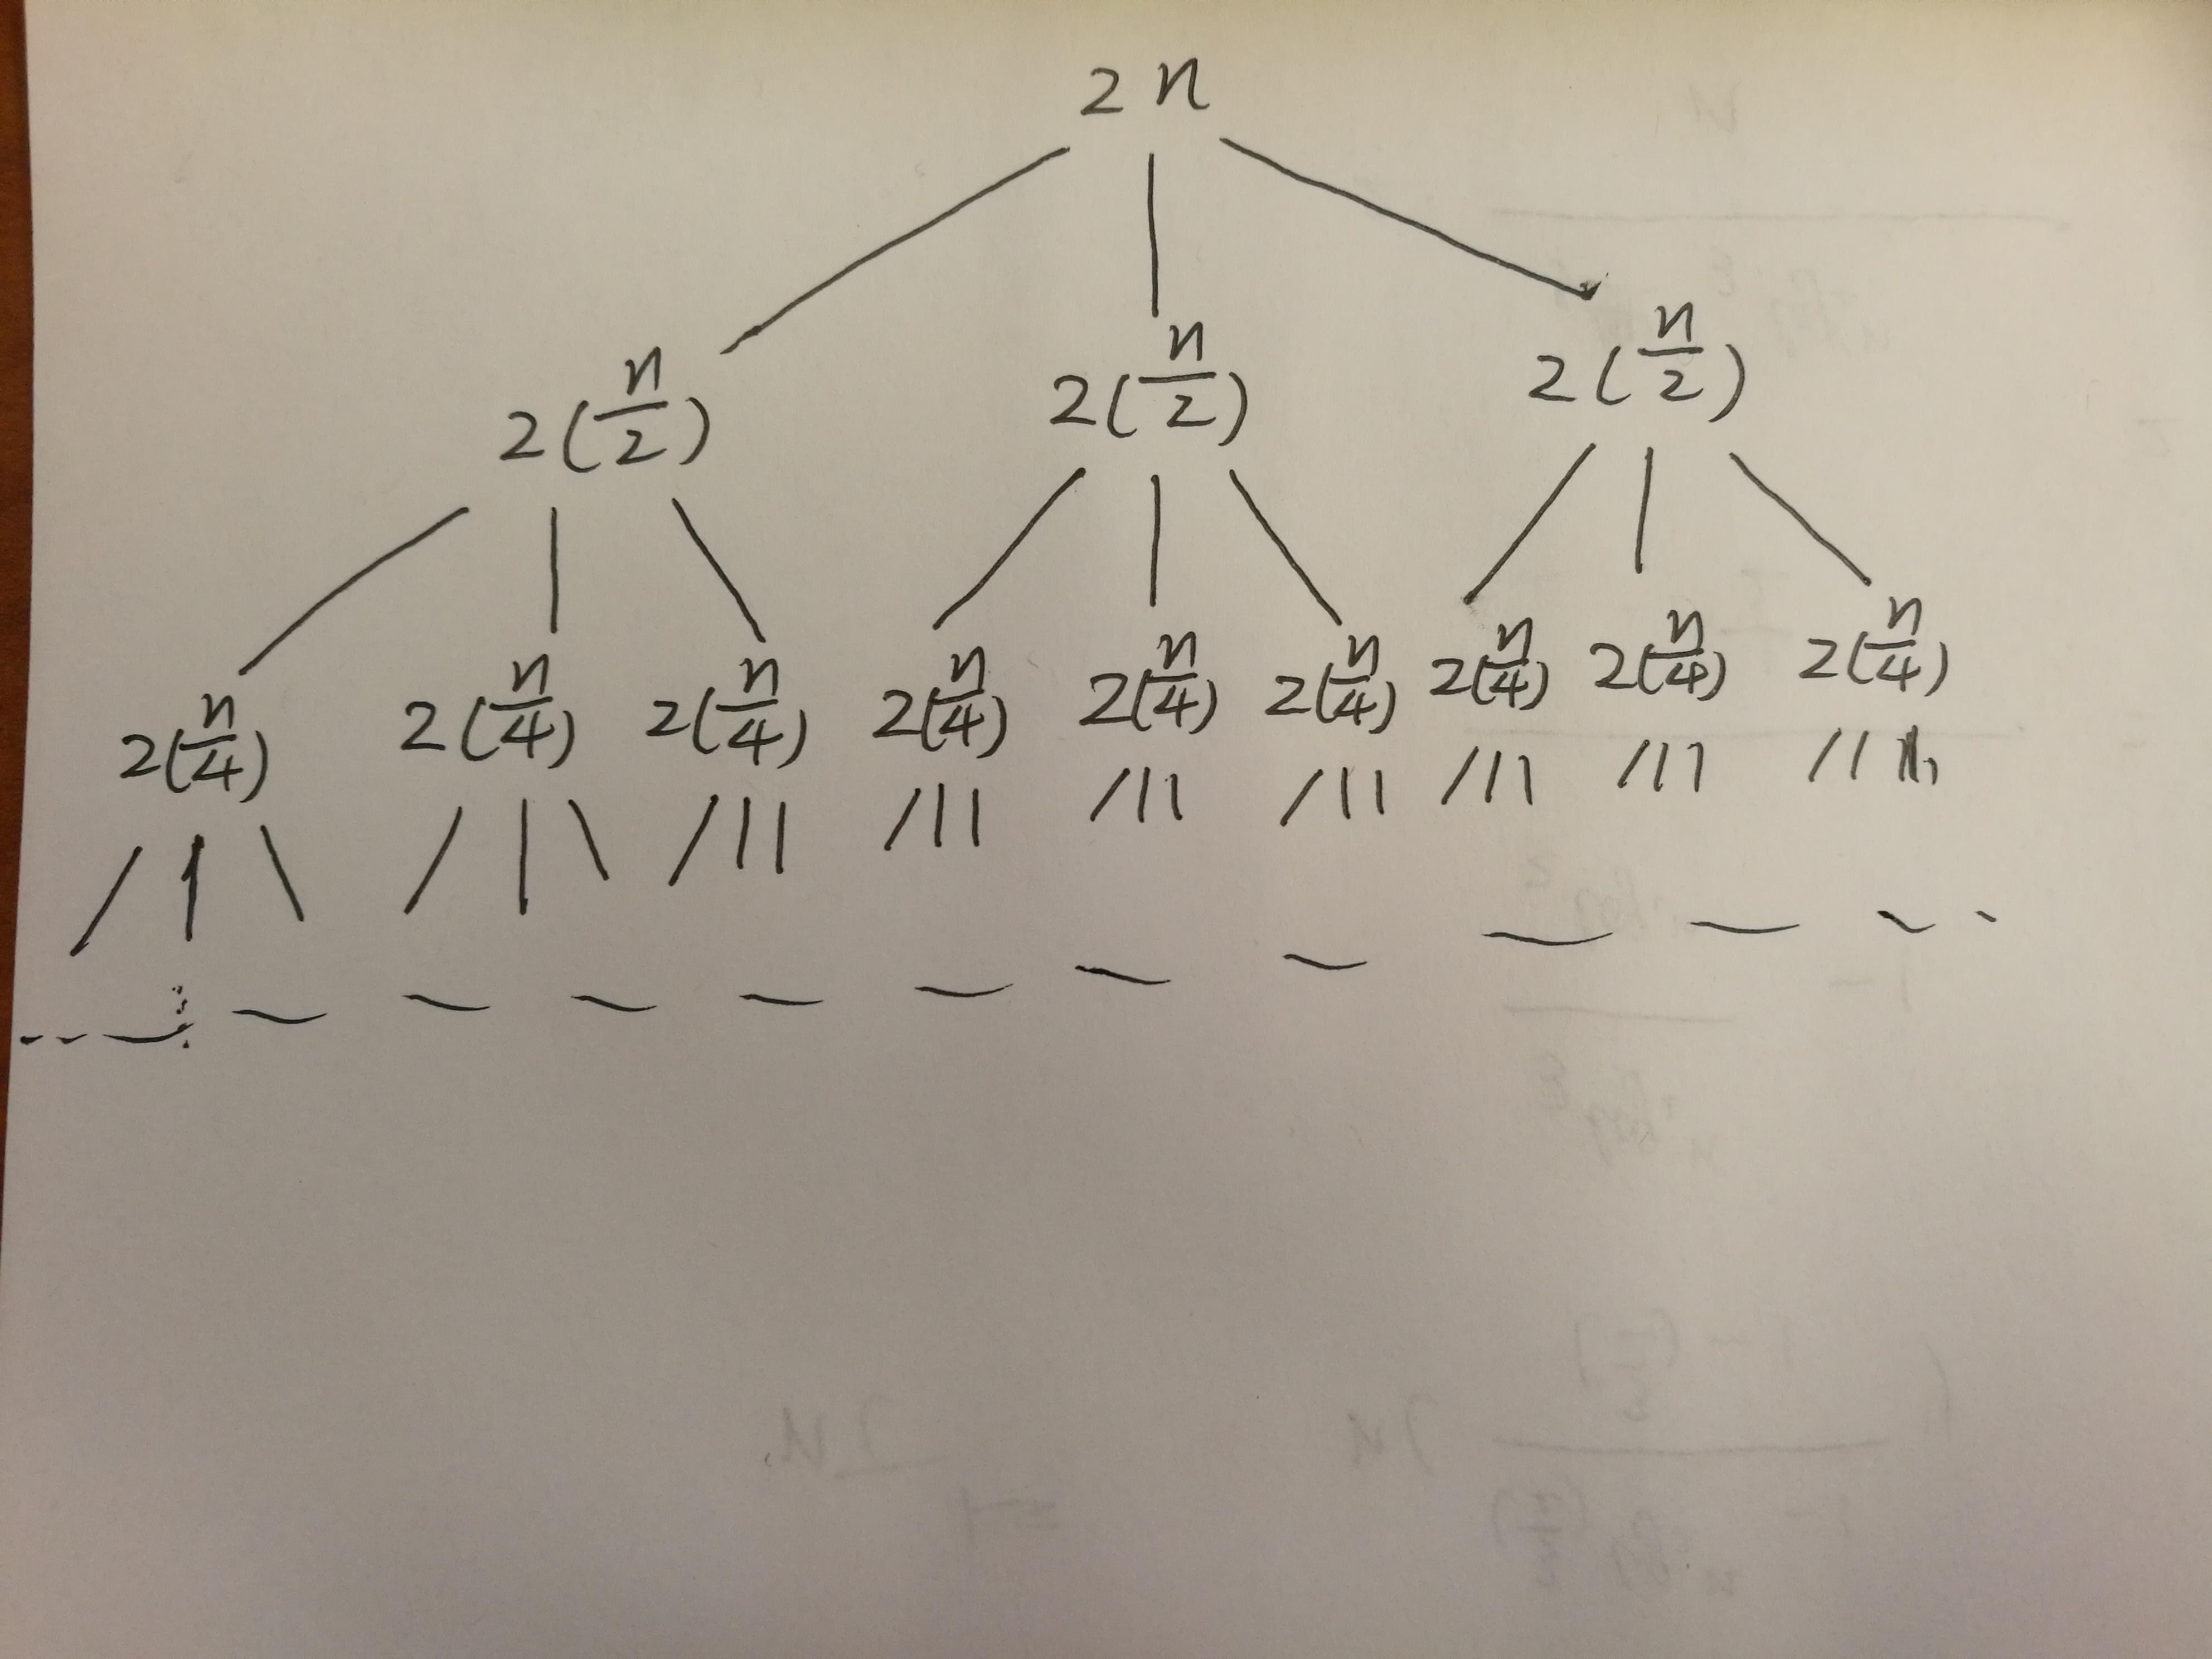 2n
2(n/2) 2(n/2) 2(n/2)
2(n/4) 2(n/4) 2(n/4) 2(n/4) 2(n/4) 2(n/4) 2(n/4) 2(n/4) 2(n/4)